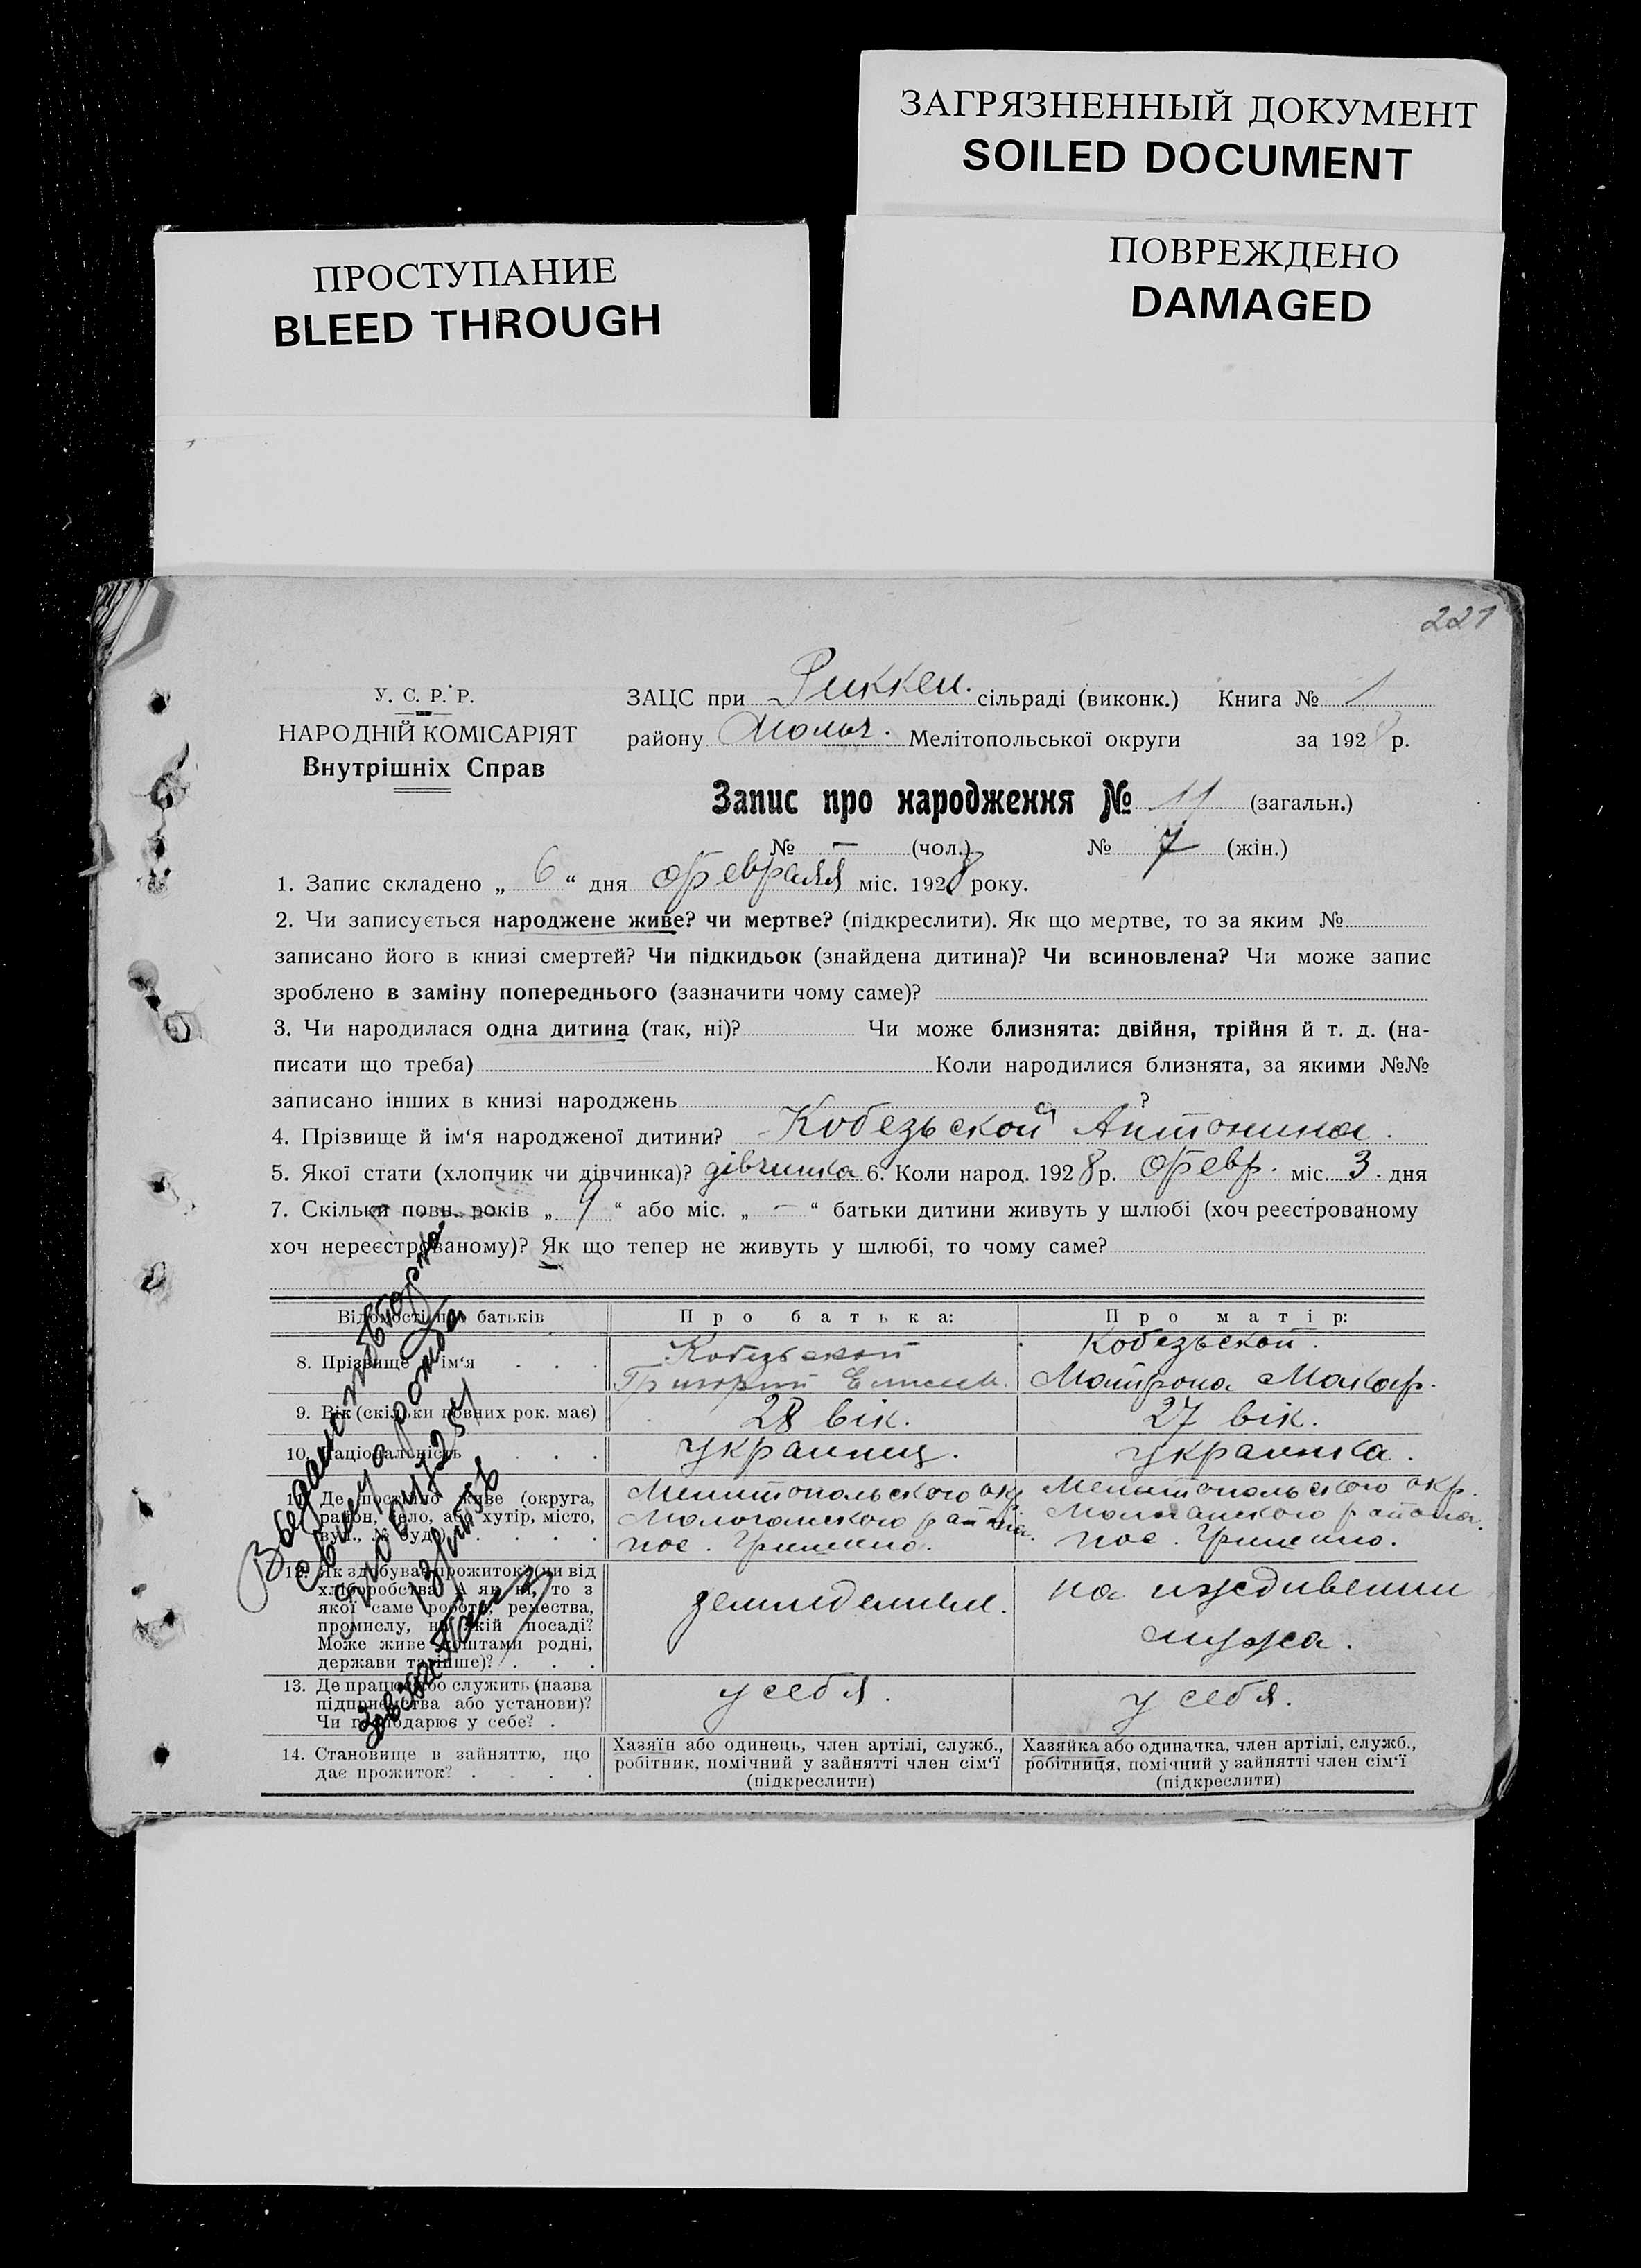 ЗАГРЯЗНЕННЫЙ ДОКУМЕНТ
SOILED DOCUMENT
ПРОСТУПАНИЕ
BLEED THROUGH
ПОВРЕЖДЕНО
DAMAGED
221
У. С. Р. Р.
НАРОДНІЙ КОМІСАРІЯТ
Внутрішніх Справ
ЗАЦС при Риккен. сільраді (виконк.) Книга № 1
району Молоч. Мелітопольської округи за 1928 р.
Запис про народження № 11 (загальн.)
№ — (чол.) № 7 (жін.)
1. Запис складено „ 6 “ дня февраля міс. 1928 року.
2. Чи записується народжене живе? чи мертве? (підкреслити). Як що мертве, то за яким №
записано його в книзі смертей? Чи підкидьок (знайдена дитина)? Чи всиновлена? Чи може запис
зроблено в заміну попереднього (зазначити чому саме)?
3. Чи народилася одна дитина (так, ні)? Чи може близнята: двійня, трійня й т. д. (на-
писати що треба) Коли народилися близнята, за якими №№
записано інших в книзі народжень ?
4. Прізвище й ім‘я народженої дитини? Кобезьской Антонина.
5. Якої стати (хлопчик чи дівчинка)? дівчинка 6. Коли народ. 1928 р. февр. міс. 3. дня
7. Скільки повн. років „ 9 “ або міс. „ — “ батьки дитини живуть у шлюбі (хоч реєстрованому
хоч нереєстрованому)? Як що тепер не живуть у шлюбі, то чому саме?
Відомості про батьків Про батька: Про матір:
8. Прізвище й ім‘я . . .
Кобезьской
Григорий Елисеев.
Кобезьской.
Матрона Макар.
9. Вік (скільки повних рок. має) 28 вік. 27 вік.
10. Національність . . . украинец. украинка.
11. Де постійно живе (округа,
район, село, або хутір, місто,
вул., № буд.) . . . .
Мелитопольского окр.
Молочанского района.
пос. Гришено.
Мелитопольского окр.
Молочанского района.
пос. Гришено.
12. Як здобуває прожиток? (чи від
хліборобства? А як ні, то з
якої саме роботи, ремества,
промислу, на якій посаді?
Може живе коштами родні,
держави та інше)? . . .
земледелием.
на иждивении
мужа.
13. Де працює або служить (назва
підприємства або установи)?
Чи господарює у себе? .
у себя. у себя.
14. Становище в зайняттю, що
дає прожиток? . . . .
Хазяїн або одинець, член артілі, служб.,
робітник, помічний у зайнятті член сім‘ї
(підкреслити)
Хазяйка або одиначка, член артілі, служб.,
робітниця, помічний у зайнятті член сім‘ї
(підкреслити)